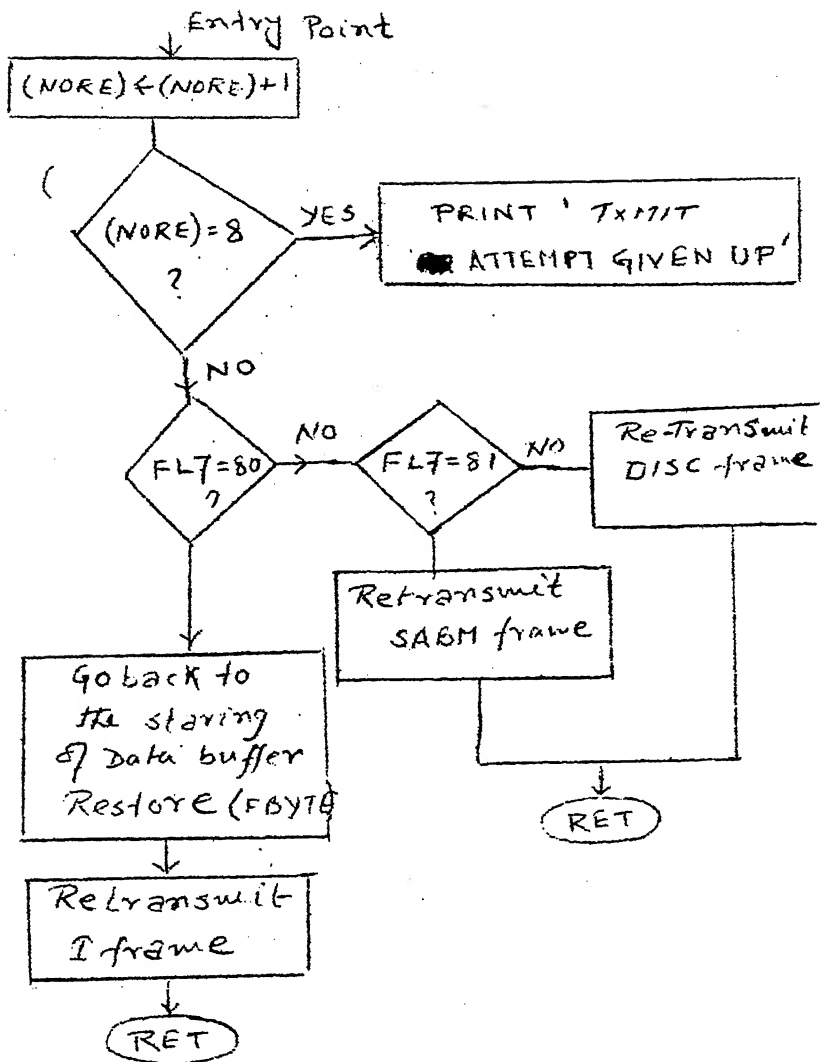 Entry Point
(NORE)←(NORE)+1
(NORE)=8
?
YES
PRINT ' TXMIT
ATTEMPT GIVEN UP'
NO
FL7=80
?
NO
FL7=81
?
NO
Re-Transmit
DISC frame
Retransmit
SABM frame
Go back to
the staring
of Data buffer
Restore (FBYTE
RET
Retransmit
I frame
RET